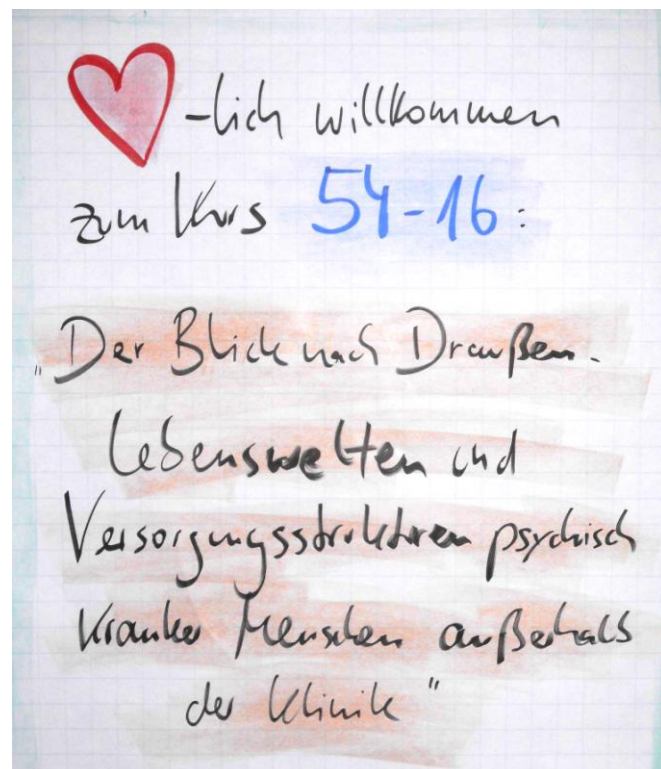 -lich willkommen
zum Kurs 54-16:
„Der Blick nach Draußen -
Lebenswelten und
Versorgungsstrukturen psychisch
kranker Menschen außerhalb
der Klinik"